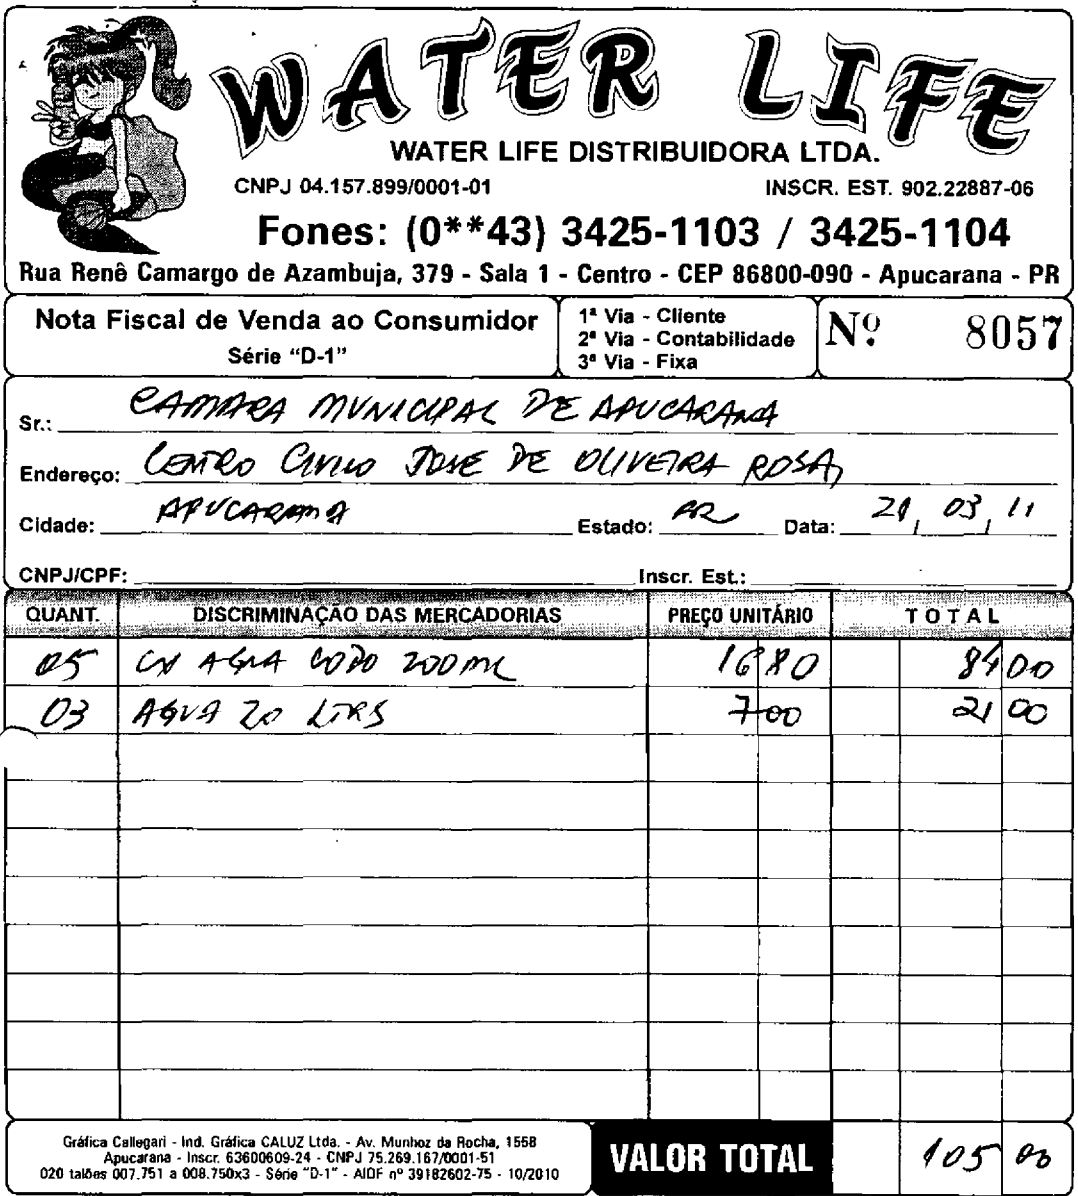 WATER LIFE
WATER LIFE DISTRIBUIDORA LTDA.
CNPJ 04.157.899/0001-01 INSCR. EST. 902.22887-06
Fones: (0**43) 3425-1103 / 3425-1104
Rua Renê Camargo de Azambuja, 379 - Sala 1 - Centro - CEP 86800-090 - Apucarana - PR
Nota Fiscal de Venda ao Consumidor
Série "D-1"
1ª Via - Cliente
2ª Via - Contabilidade
3ª Via - Fixa
Nº 8057
Sr.: CAMARA MUNICIPAL DE APUCARANA
Endereço: CENTRO CIVICO JOSE DE OLIVEIRA ROSA,
Cidade: APUCARANA Estado: PR Data: 21, 03, 11
CNPJ/CPF: Inscr. Est.:
QUANT. DISCRIMINAÇÃO DAS MERCADORIAS PREÇO UNITÁRIO TOTAL
05 CX AGUA COPO 200 ML 16 80 84 00
03 AGUA 20 LTRS 7 00 21 00
Gráfica Callegari - Ind. Gráfica CALUZ Ltda. - Av. Munhoz da Rocha, 1558
Apucarana - Inscr. 63600609-24 - CNPJ 75.269.167/0001-51
020 talões 007.751 a 008.750x3 - Série "D-1" - AIDF nº 39182602-75 - 10/2010
VALOR TOTAL 105 00